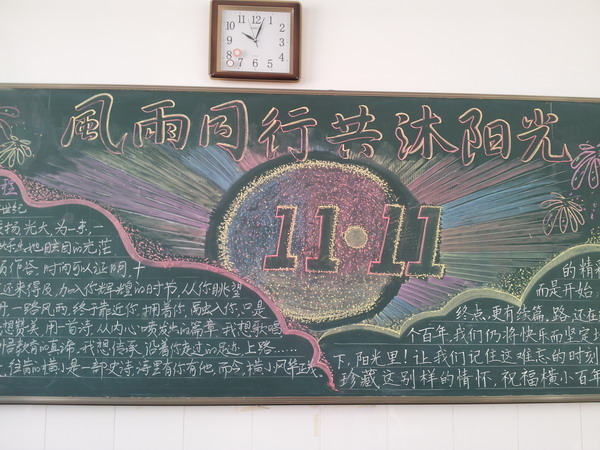 12
1
2
3
4
5
6
7
8
9
10
11
風雨同行共沐阳光
11·11
世纪
扬光大为一束一
的光茫
时间可以证明
还来得及,加入你辉煌的时节,从你眺望
一路风雨,终于靠近你,拥着你,高出入你,只是
想赞美,用一首诗,从内心喷发出的篇章,我想歌唱
教育的真谛,我想传承,沿着你走过的足迹,上路……
横小是一部史诗,诗里有你有他,而今,横小风华正茂
的精神
而是开始,
终点,更有续篇,路还在
个百年,我们仍将快乐而坚定
下,阳光里!让我们记住这难忘的时刻
珍藏这别样的情怀,祝福横小百年